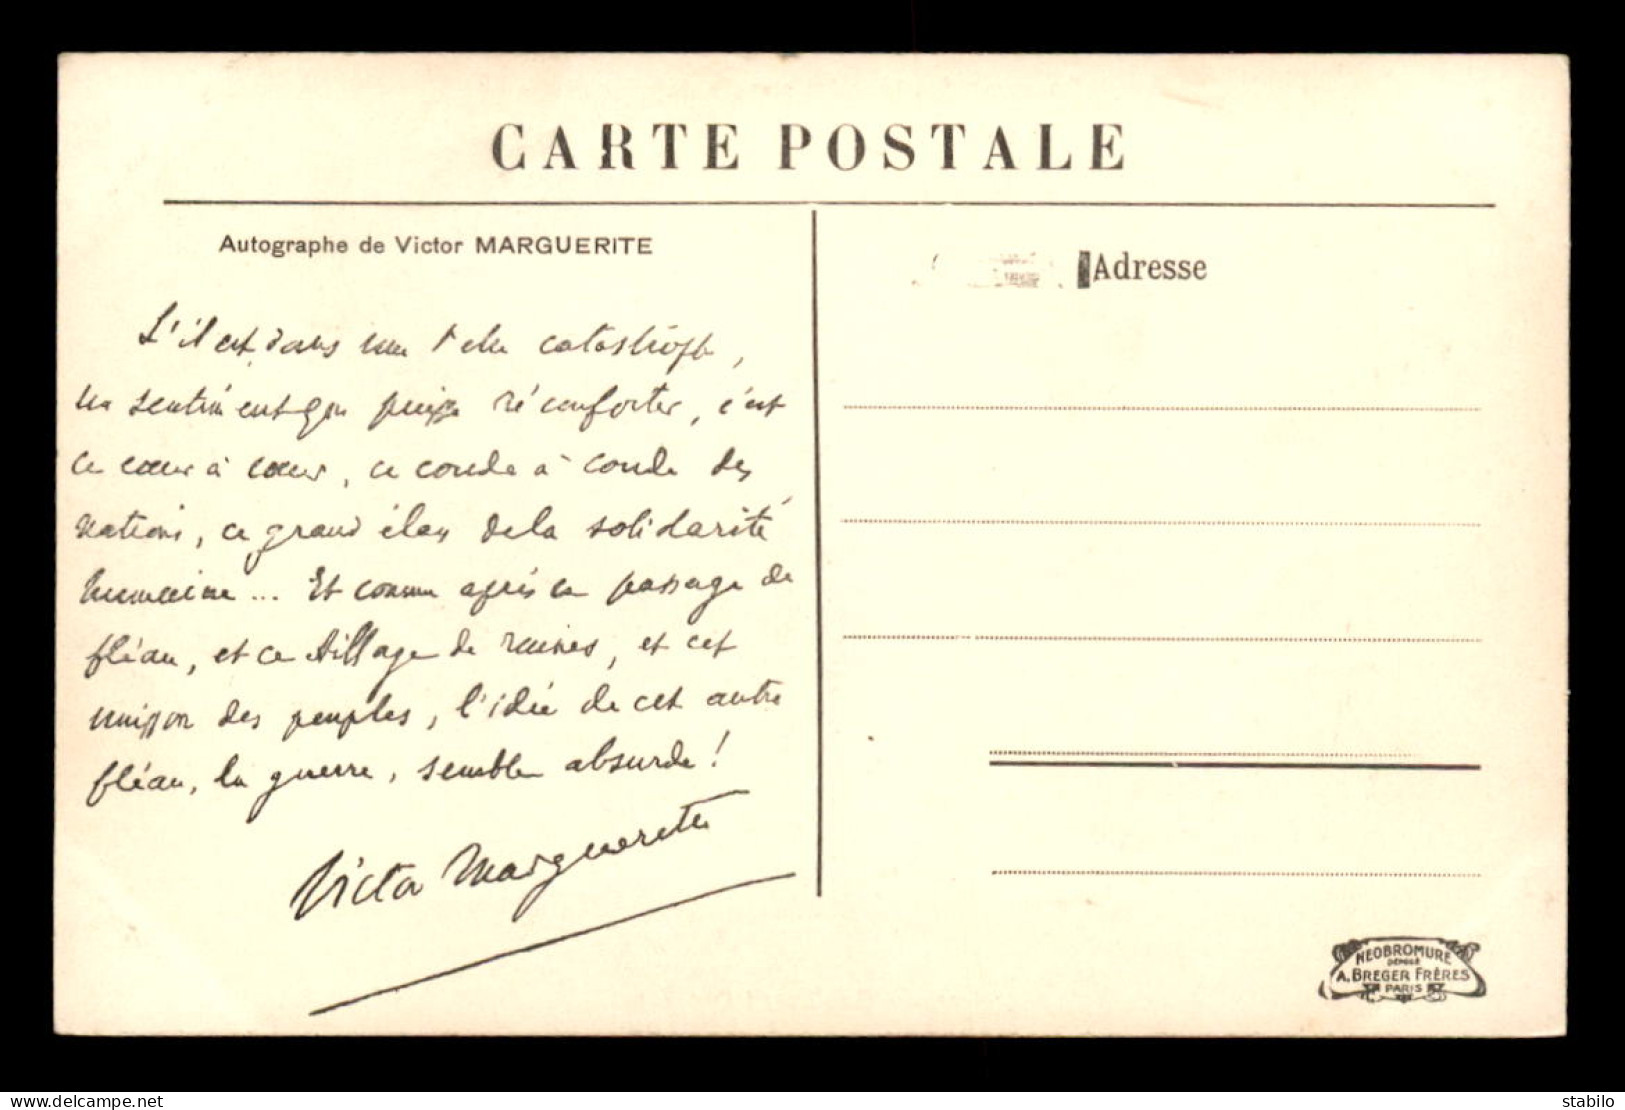 CARTE POSTALE
Autographe de Victor MARGUERITE
S'il est, dans une telle catastrophe,
un sentiment qui puisse réconforter, c'est
ce cœur à cœur, ce coude à coude des
nations, ce grand élan de la solidarité
humaine... Et comme après ce passage du
fléau, et ce sillage de ruines, et cet
unisson des peuples, l'idée de cet autre
fléau, la guerre, semble absurde!
Victor Margueritte
Adresse
NEOBROMURE
DÉPOSÉ
A. BREGER FRÈRES
PARIS
delcampe.net
stabilo